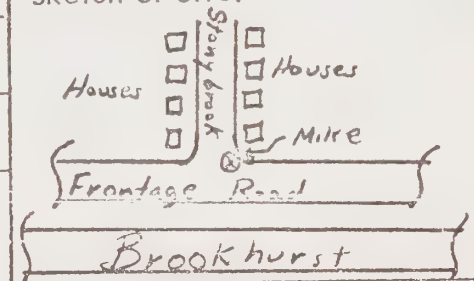 Sketch of Site:
Stonybrook
Houses
Houses
Mike
Frontage Road
Brookhurst